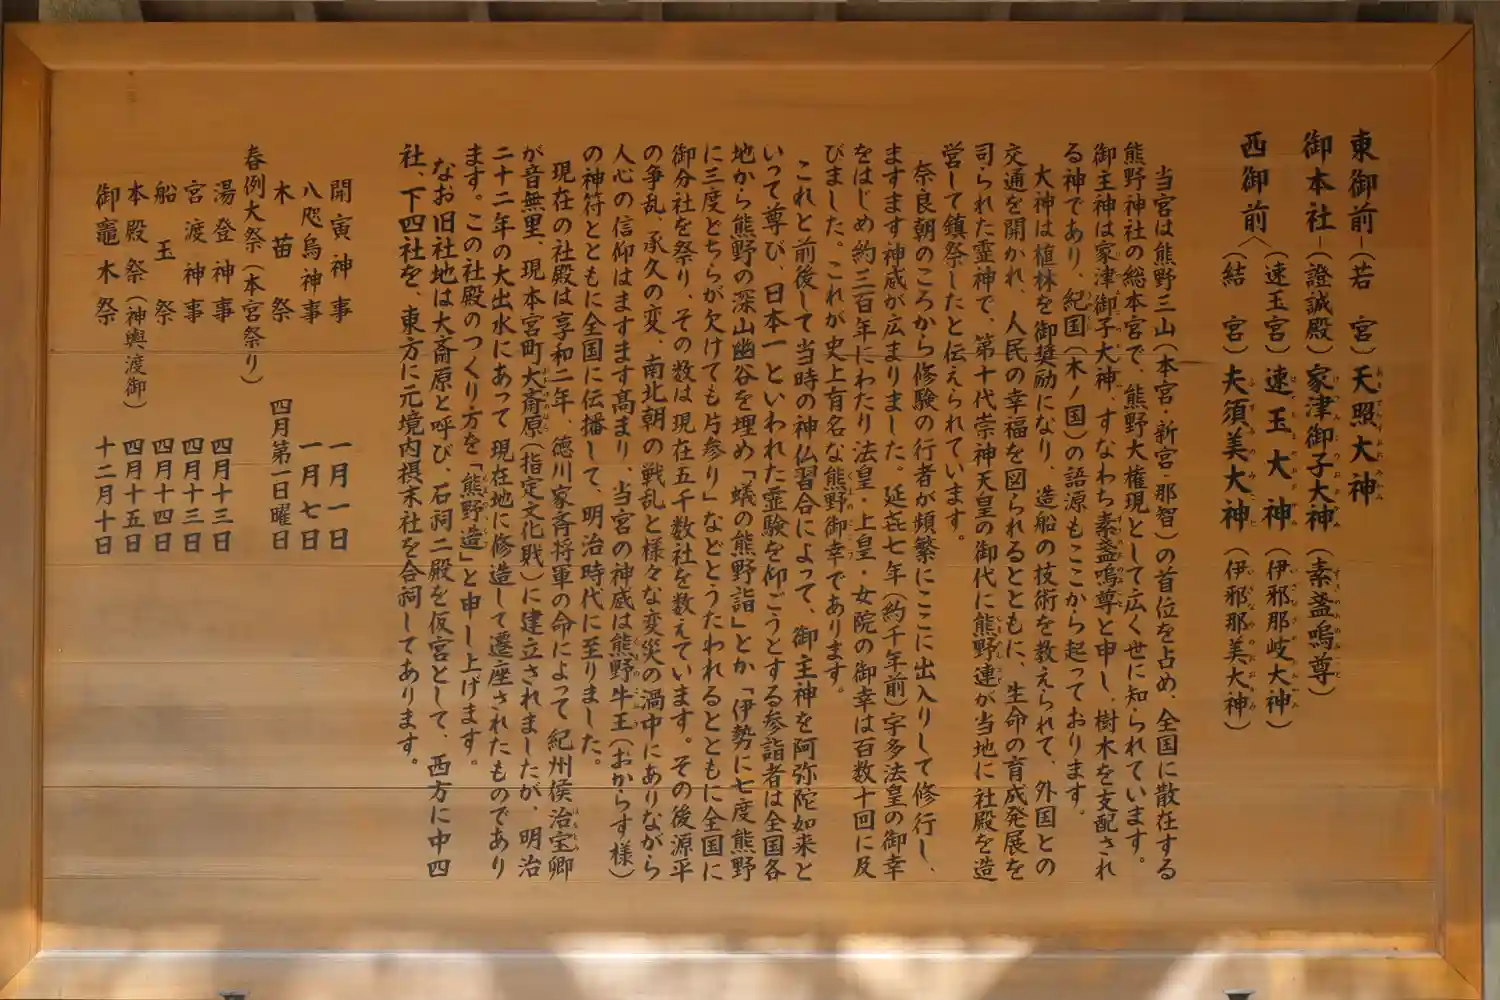 東御前―(若宮)天照大神
御本社―(證誠殿)家津御子大神(素盞嗚尊)
(速玉宮)速玉大神(伊邪那岐大神)
西御前〈
(結宮)夫須美大神(伊邪那美大神)
当宮は熊野三山(本宮・新宮・那智)の首位を占め、全国に散在する
熊野神社の総本宮で、熊野大権現として広く世に知られています。
御主神は家津御子大神、すなわち素盞嗚尊と申し、樹木を支配され
る神であり、紀国(木ノ国)の語源もここから起っております。
大神は植林を御奨励になり、造船の技術を教えられて、外国との
交通を開かれ、人民の幸福を図られるとともに、生命の育成発展を
司られた霊神で、第十代崇神天皇の御代に熊野連が当地に社殿を造
営して鎮祭したと伝えられています。
奈良朝のころから修験の行者が頻繁にここに出入りして修行し、
ますます神威が広まりました。延㐂七年(約千年前)宇多法皇の御幸
をはじめ約三百年にわたり法皇・上皇・女院の御幸は百数十回に及
びました。これが史上有名な熊野御幸であります。
これと前後して当時の神仏習合によって、御主神を阿弥陀如来と
いって尊び、日本一といわれた霊験を仰ごうとする参詣者は全国各
地から熊野の深山幽谷を埋め「蟻の熊野詣」とか「伊勢に七度熊野
に三度どちらが欠けても片参り」などとうたわれるとともに全国に
御分社を祭り、その数は現在五千数社を数えています。その後源平
の争乱、承久の変、南北朝の戦乱と様々な変災の渦中にありながら
人心の信仰はますます高まり、当宮の神威は熊野牛王(おからす様)
の神符とともに全国に伝播して、明治時代に至りました。
現在の社殿は享和二年、徳川家斉将軍の命によって紀州侯治宝卿
が音無里、現本宮町大斎原(指定文化財)に建立されましたが、明治
二十二年の大出水にあって現在地に修造して遷座されたものであり
ます。この社殿のつくり方を「熊野造」と申し上げます。
なお旧社地は大斎原と呼び、石祠二殿を仮宮として、西方に中四
社、下四社を、東方に元境内摂末社を合祠してあります。
開寅神事 一月一日
八咫烏神事 一月七日
木苗祭 四月第一日曜日
春例大祭(本宮祭り)
湯登神事 四月十三日
宮渡神事 四月十三日
船玉祭 四月十四日
本殿祭(神輿渡御) 四月十五日
御竈木祭 十二月十日